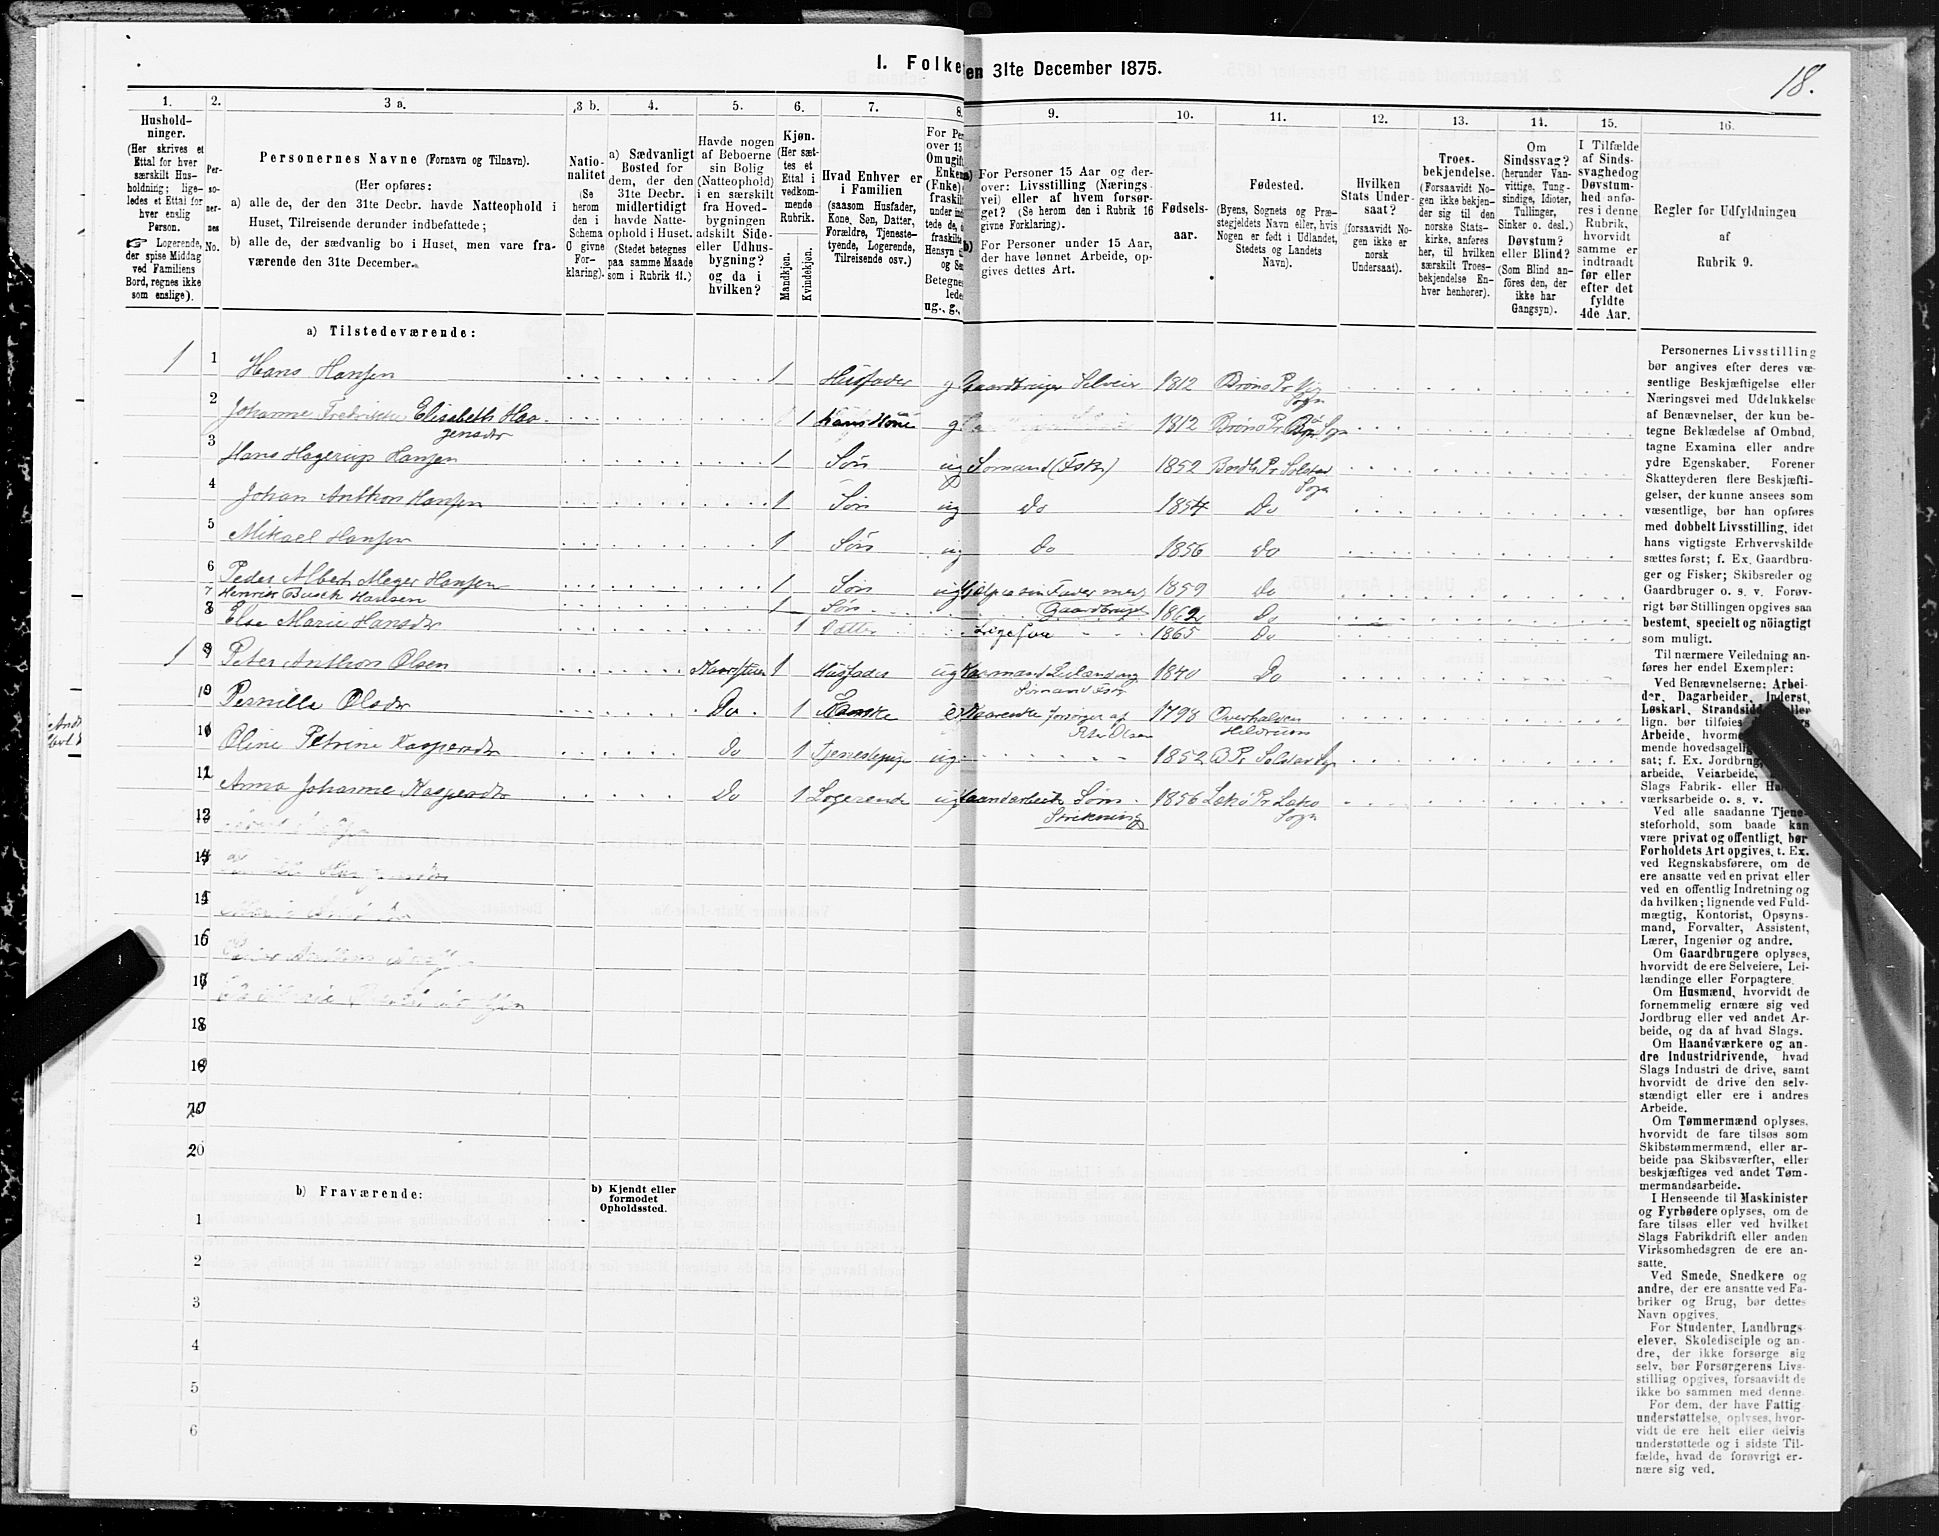 I. Folke
en 31te December 1875.
18.
1.
2.
3 a.
3 b.
4.
5.
6.
7.
8.
9.
10.
11.
12.
13.
14.
15.
16.
Hushold-
ninger.
(Her skrives et
Ettal for hver
særskilt Hus-
holdning; lige-
ledes et Ettal for
hver enslig
Person.
☞ Logerende,
der spise Middag
ved Familiens
Bord, regnes ikke
som enslige).
Per-
so-
ner-
nes
No.
Personernes Navne (Fornavn og Tilnavn).
(Her opføres:
a) alle de, der den 31te Decbr. havde Natteophold i
Huset, Tilreisende derunder indbefattede;
b) alle de, der sædvanlig bo i Huset, men vare fra-
værende den 31te December.
Natio-
nalitet
(Se
herom
den i
Schema
O givne
For-
klaring).
a) Sædvanligt
Bosted for
dem, der den
31te Decbr.
midlertidigt
havde Natte-
ophold i Huset.
(Stedet betegnes
paa samme Maade
som i Rubrik 11.)
Havde nogen
af Beboerne
sin Bolig
(Natteophold)
i en særskilt
fra Hoved-
bygningen
adskilt Side-
eller Udhus-
bygning?
og da i
hvilken?
Kjøn.
(Her sæt-
tes et
Ettal i
vedkom-
mende
Rubrik.
Mandkjøn.
Kvindekjøn.
Hvad Enhver er
i Familien
(saasom Husfader,
Kone, Søn, Datter,
Forældre, Tjeneste-
tyende, Logerende,
Tilreisende osv.)
For Pe
over 15
Om ugift
Enkem
(Fnke)
fraskilt
under ind
tede de,
fraskilte
Hensyn
og Se
Betegne
lede
ug., g.,
a) For Personer 15 Aar og der-
over: Livsstilling (Nærings-
vei) eller af hvem forsør-
get? (Se herom den i Rubrik 16
givne Forklaring).
b) For Personer under 15 Aar,
der have lønnet Arbeide, op-
gives dettes Art.
Fødsels-
aar.
Fødested.
(Byens, Sognets og Præ-
stegjeldets Navn eller, hvis
Nogen er født i Udlandet,
Stedets og Landets
Navn).
Hvilken
Stats Under-
saat?
(forsaavidt No-
gen ikke er
norsk
Undersaat).
Troes-
bekjendelse.
(Forsaavidt No-
gen ikke bekjen-
der sig til den
norske Stats-
kirke, anføres
her, til hvilken
særskilt Troes-
bekjendelse En-
hver henhører).
Om
Sindssvag?
(herunder Van-
vittige, Tung-
sindige, Idioter,
Tullinger,
Sinker o. desl.)
Døvstum?
eller Blind?
(Som Blind an-
føres den, der
ikke har
Gangsyn).
I Tilfælde
af Sinds-
svaghed og
Døvstum-
hed anfø-
res i denne
Rubrik,
hvorvidt
samme er
indtraadt
før eller
efter det
fyldte
4de Aar.
Regler for Udfyldningen
af
Rubrik 9.
a) Tilstedeværende:
1 1 Hans Hansen 1 Husfader g Gaardbruger Selveier 1812 Brønø Pr
Sogn
2 Johanne Fredrikke Elisabeth Haa- 1 Kone g 1812 Brønø Pr Sogn
gensdtr
3 Hans Hagerup Hansen 1 Søn ug Sømand (Fisk) 1852 Pr Solstad
Sogn
4 Johan Anthon Hansen 1 Søn ug Do 1854 Do
5 Mikael Hansen 1 Søn ug Do 1856 Do
6 Peder Albert Meyer Hansen 1 Søn ug Hjælper sin Fader med 1859 Do
7 Henrik Busch Hansen 1 Søn Gaardbruget 1862 Do
8 Else Marie Hansdtr 1 Datter Ligesaa 1865 Do
1 9 Peter Anthon Olsen 1 Husfader ug 1840 Do
10 Pernille Olsdtr Do 1 e af 1798 Overhalven
Peter Olsen
11 Oline Petrine Kaspersdtr Do 1 Tjenestepige ug 1852 B Pr Solstad Sogn
12 Anna Johanne Kaspersdtr Do 1 Logerende ug Haandarbeide Søm 1856 Lekø Pr Lekø
Strikning Sogn
13
14
15
16
17
18
19
20
b) Fraværende:
b) Kjendt eller
formodet
Opholdssted.
1
2
3
4
5
6
Personernes Livsstilling
bør angives efter deres væ-
sentlige Beskjæftigelse eller
Næringsvei med Udelukkelse
af Benævnelser, der kun be-
tegne Beklædelse af Ombud,
tagne Examina eller andre
ydre Egenskaber. Forener
Skatteyderen flere Beskjæfti-
gelser, der kunne ansees som
væsentlige, bør han opføres
med dobbelt Livsstilling, idet
hans vigtigste Erhvervskilde
sættes først; f. Ex. Gaardbru-
ger og Fisker; Skibsreder og
Gaardbruger o. s. v. Forøv-
rigt bør Stillingen opgives saa
bestemt, specielt og nøiagtigt
som muligt.
Til nærmere Veiledning an-
føres her endel Exempler:
Ved Benævnelserne: Arbei-
der, Dagarbeider, Inderst,
Løskarl, Strandsidder eller
lign. bør tilføies
Arbeide, hvorm
mende hovedsagelig
sat; f. Ex. Jordbrug,
arbeide, Veiarbeide,
Slags Fabrik- eller
værksarbeide o. s. v.
Ved alle saadanne Tjene-
steforhold, som baade kan
være privat og offentligt, bør
Forholdets Art opgives, t. Ex.
ved Regnskabsførere, om de
ere ansatte ved en privat eller
ved en offentlig Indretning og
da hvilken; lignende ved Fuld-
mægtig, Kontorist, Opsyns-
mand, Forvalter, Assistent,
Lærer, Ingeniør og andre.
Om Gaardbrugere oplyses,
hvorvidt de ere Selveiere, Lei-
lændinge eller Forpagtere.
Om Husmænd, hvorvidt de
fornemmelig ernære sig ved
Jordbrug eller ved andet Ar-
beide, og da af hvad Slags.
Om Haandværkere og an-
dre Industridrivende, hvad
Slags Industri de drive, samt
hvorvidt de drive den selv-
stændigt eller ere i andres
Arbeide.
Om Tømmermænd oplyses,
hvorvidt de fare tilsøs som
Skibstømmermænd, eller ar-
beide paa Skibsværfter, eller
beskjæftiges ved andet Tøm-
mermandsarbeide.
I Henseende til Maskinister
og Fyrbødere oplyses, om de
fare tilsøs eller ved hvilket
Slags Fabrikdrift eller anden
Virksomhedsgren de ere an-
satte.
Ved Smede, Snedkere og
andre, der ere ansatte ved Fa-
briker og Brug, bør dettes
Navn opgives.
For Studenter, Landbrugs-
elever, Skoledisciple og an-
dre, der ikke forsørge sig
selv, bør Forsørgerens Livs-
stilling opgives, forsaavidt de
ikke bo sammen med denne.
For dem, der have Fattig-
understøttelse, oplyses, hvor-
vidt de ere helt eller delvis
understøttede og i sidste Til-
fælde, hvad de forøvrigt er-
nære sig ved.